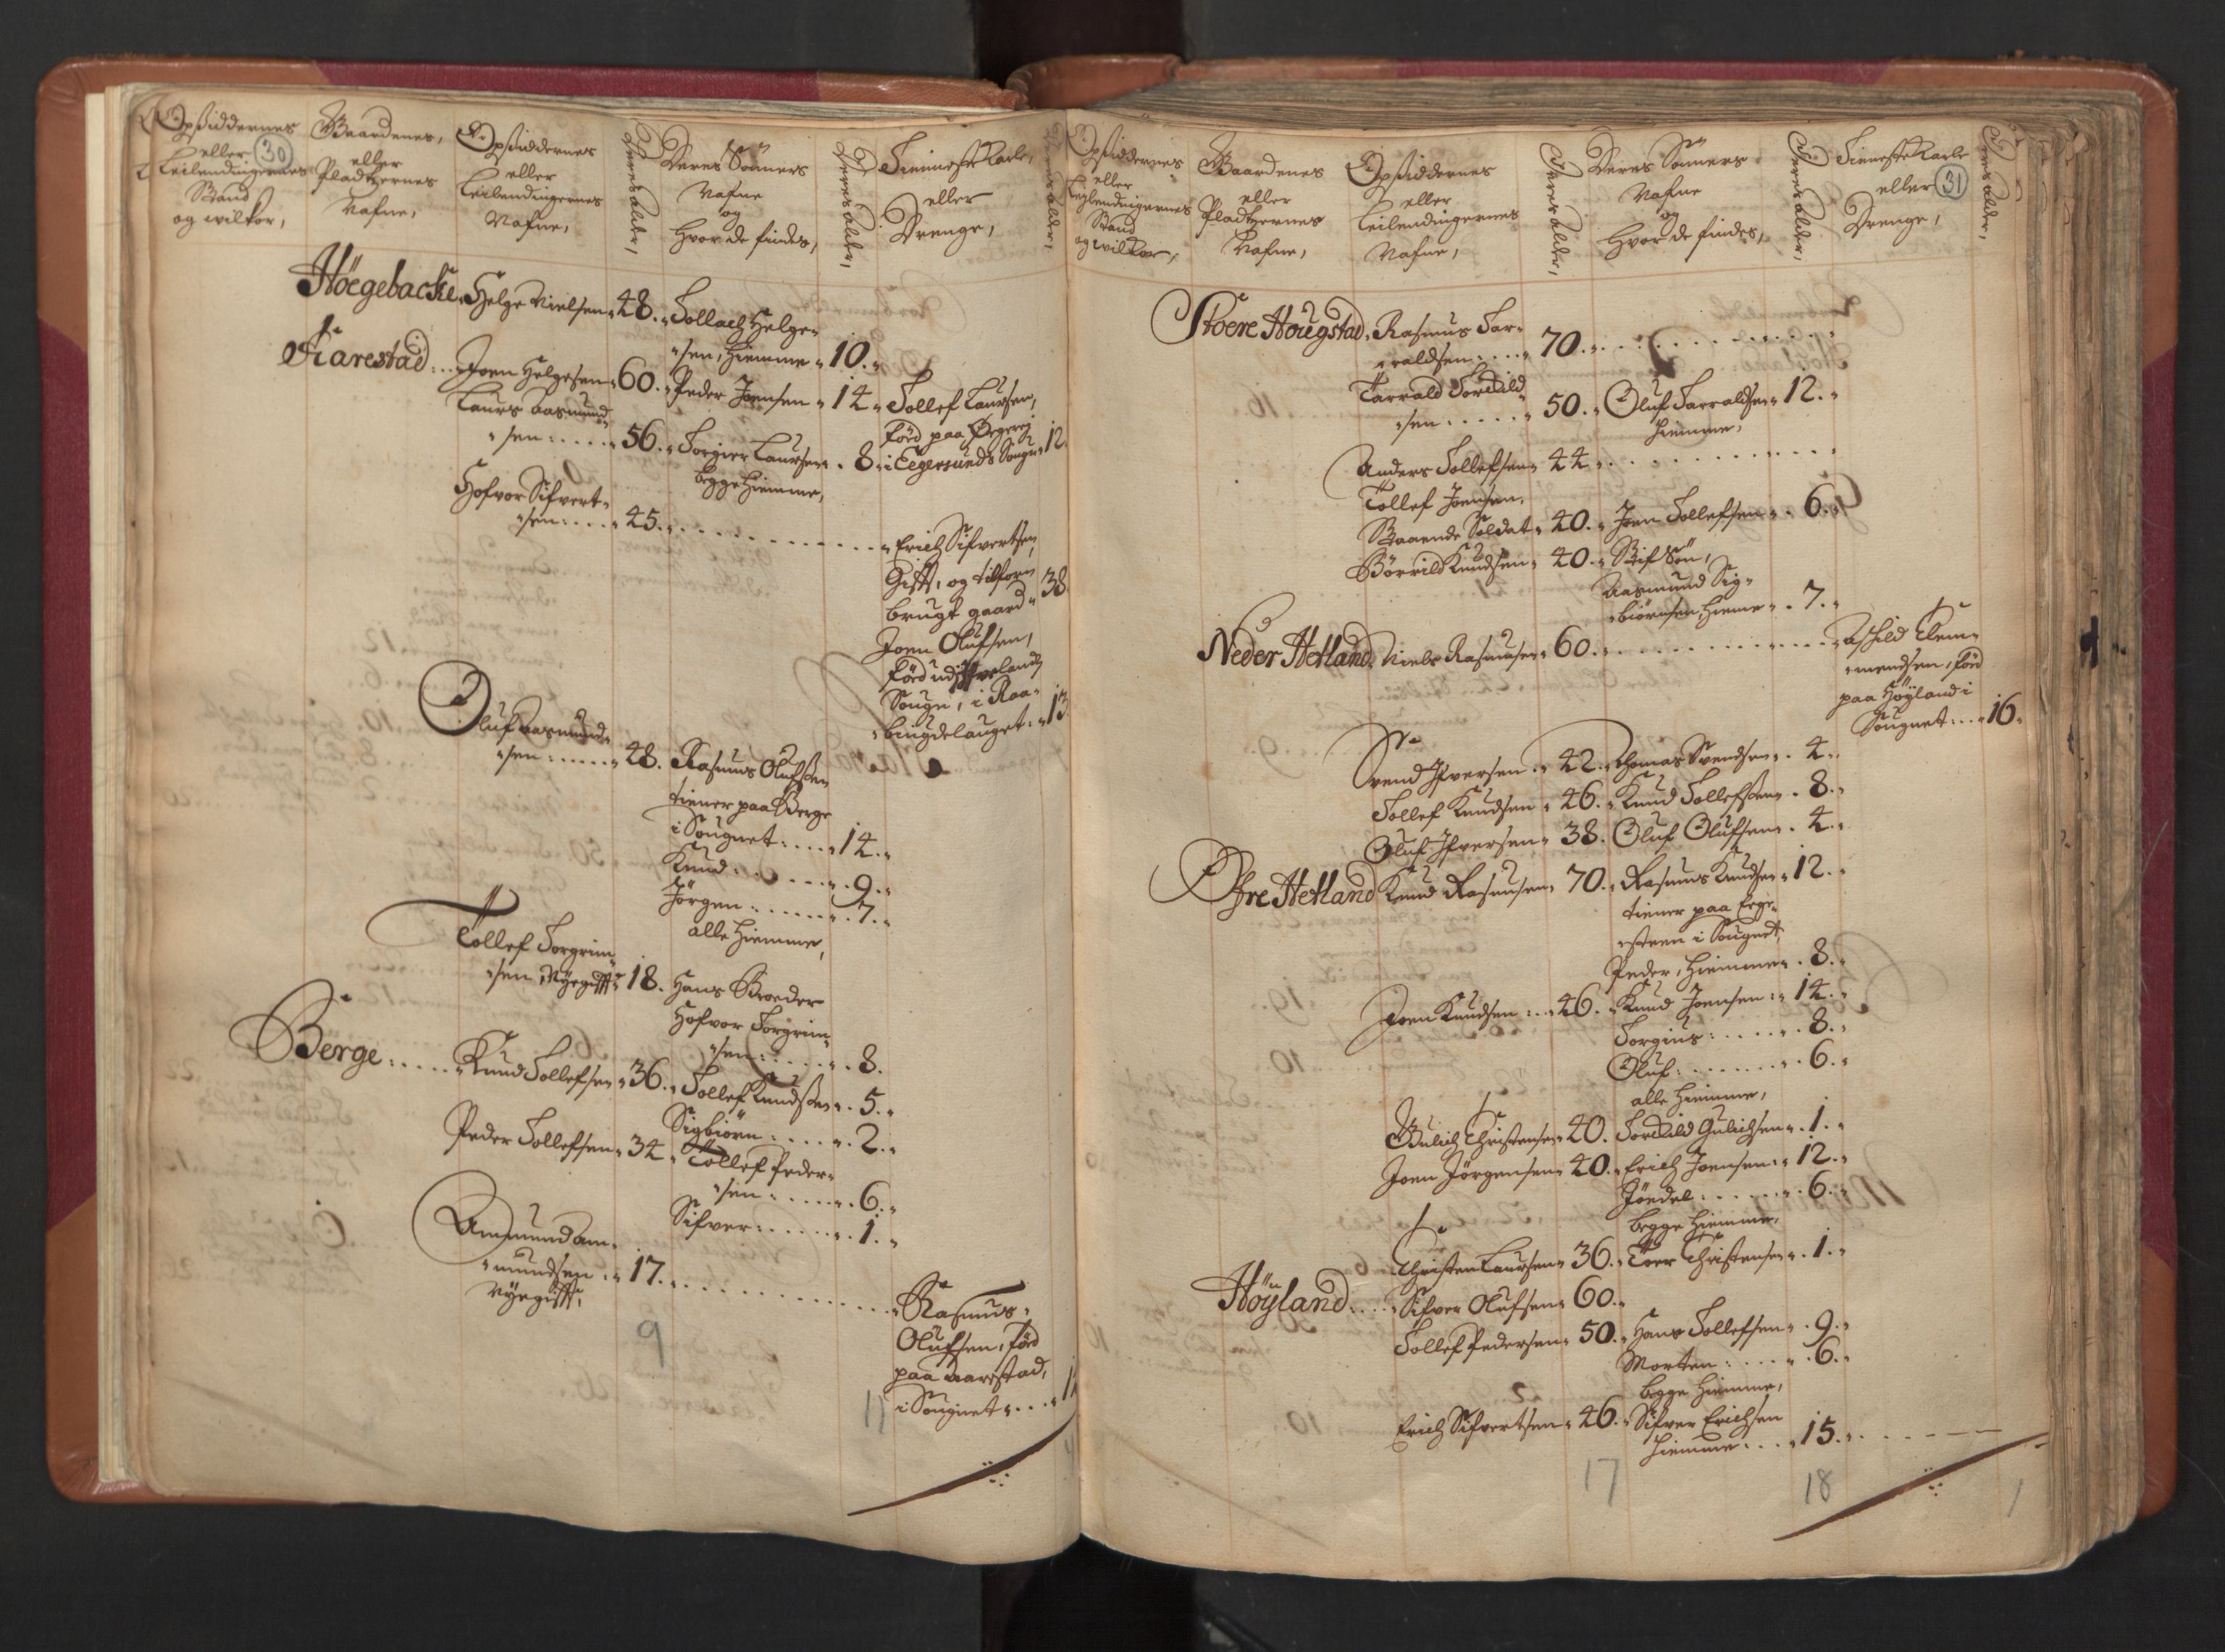 Opsiddernes
eller
Leilendingernes
Stand
og wilkor,
30
Gaardenes,
eller
Pladtzernes
Nafne,
Opsiddernes
eller
Leilendingernes
Nafne,
Deres alder,
Deres Sönners
Nafne
og
Hvor de findes,
Deres alder,
Tienneste Karle,
eller
Drenge,
Deres alder,
Höegebacke. Helge Nielsen. 48. Tollach Helge-
sen, hiemme. 10.
Aarestad: Joen Helgesen. 60. Peder Joensen. 14. Tollef Laursen,
Laurs Aasmund-
sen: 56. Torgier Laursen. 8.
begge hiemme,
föd paa
i Eegersunds Sougn. 12.
Hofvor Sifvert-
sen: 45.
Erich Sifvertsen
Gift, og tilforn
brugt gaard. 38
Joen Olufsen,
föd udj
Sougn, i Raa-
bingdelauget: 13
Oluf Aasmund-
sen: 48. Rasmus Olufsen
tiener paa Berge
i Sougnet: 14.
Knud: 9.
Jörgen: 7.
alle hiemme,
Tollef Torgrim-
sen, Nyegifft. 18. Hans Broeder
Hofvor Torgrim-
sen: 8.
Berge: Knud Tollefsen. 36. Tollef Knudsen. 5.
Sigbiörn: 2.
Peder Tollefsen. 34. Tollef Peder-
sen: 6.
Sifver: 1.
Aamund Am-
mundsen. 17.
Nyegifft,
Rasmus
Olufsen, föd
paa Aarestad,
i Sougnet. 1
9
11
Opsiddernes
eller
Leylendingernes
Stand
og wilkor,
Gaardenes
eller
Pladtzernes
Nafne,
Opsiddernes
eller
Leilendingernes
Nafne,
Deres alder,
Deres Sönners
Nafne
og
Hvor de findes,
Deres alder,
Tienneste Karle
eller
Drenge,
31
Deres alder,
Stoere Hougstad. Rasmus Tar-
raldsen: 70.
Tarrald Torkild-
sen: 50. Oluf Tarraldsen. 12.
hiemme,
Anders Tollefsen. 44.
Tollef Joensen,
Staaende Soldat. 40. Joen Tollefsen. 6.
Börrild Knudsen. 40. Stif Sön,
Aasmund Sig-
biörnsen, hieme. 7.
Neder Hetland. Niels Rasmusen. 60. Askild Clem-
mendsen, föd
paa Höyland i
Sougnet: 16.
Svend Ifversen. 42. Thomas Svendsen. 4.
Tollef Knudsen. 46. Knud Tollefsen. 8.
Oluf Ifversen. 38. Oluf Olufsen. 4.
Öfre Hetland Knud Rasmusen. 70. Rasmus Knudsen. 12.
tiener paa Eege-
steen i Sougnet,
Peder, hiemme. 8.
Joen Knudsen: 46. Knud Joensen: 14.
Torgius: 8.
Oluf: 6.
alle hiemme,
Gulich Christensen. 40. Torkild Gulichsen. 1.
Joen Jörgensen. 40. Erich Joensen: 12.
Joedel: 6.
begge hiemme,
Christen Laursen. 36. Toer Christensen. 1.
Höyland: Sifver Olufsen. 60.
Tollef Pedersen. 50. Hans Tollefsen. 9.
Morten: 6.
begge hiemme,
Erich Sifvertsen. 46. Sifver Erichsen
hiemme: 15.
17
18
1